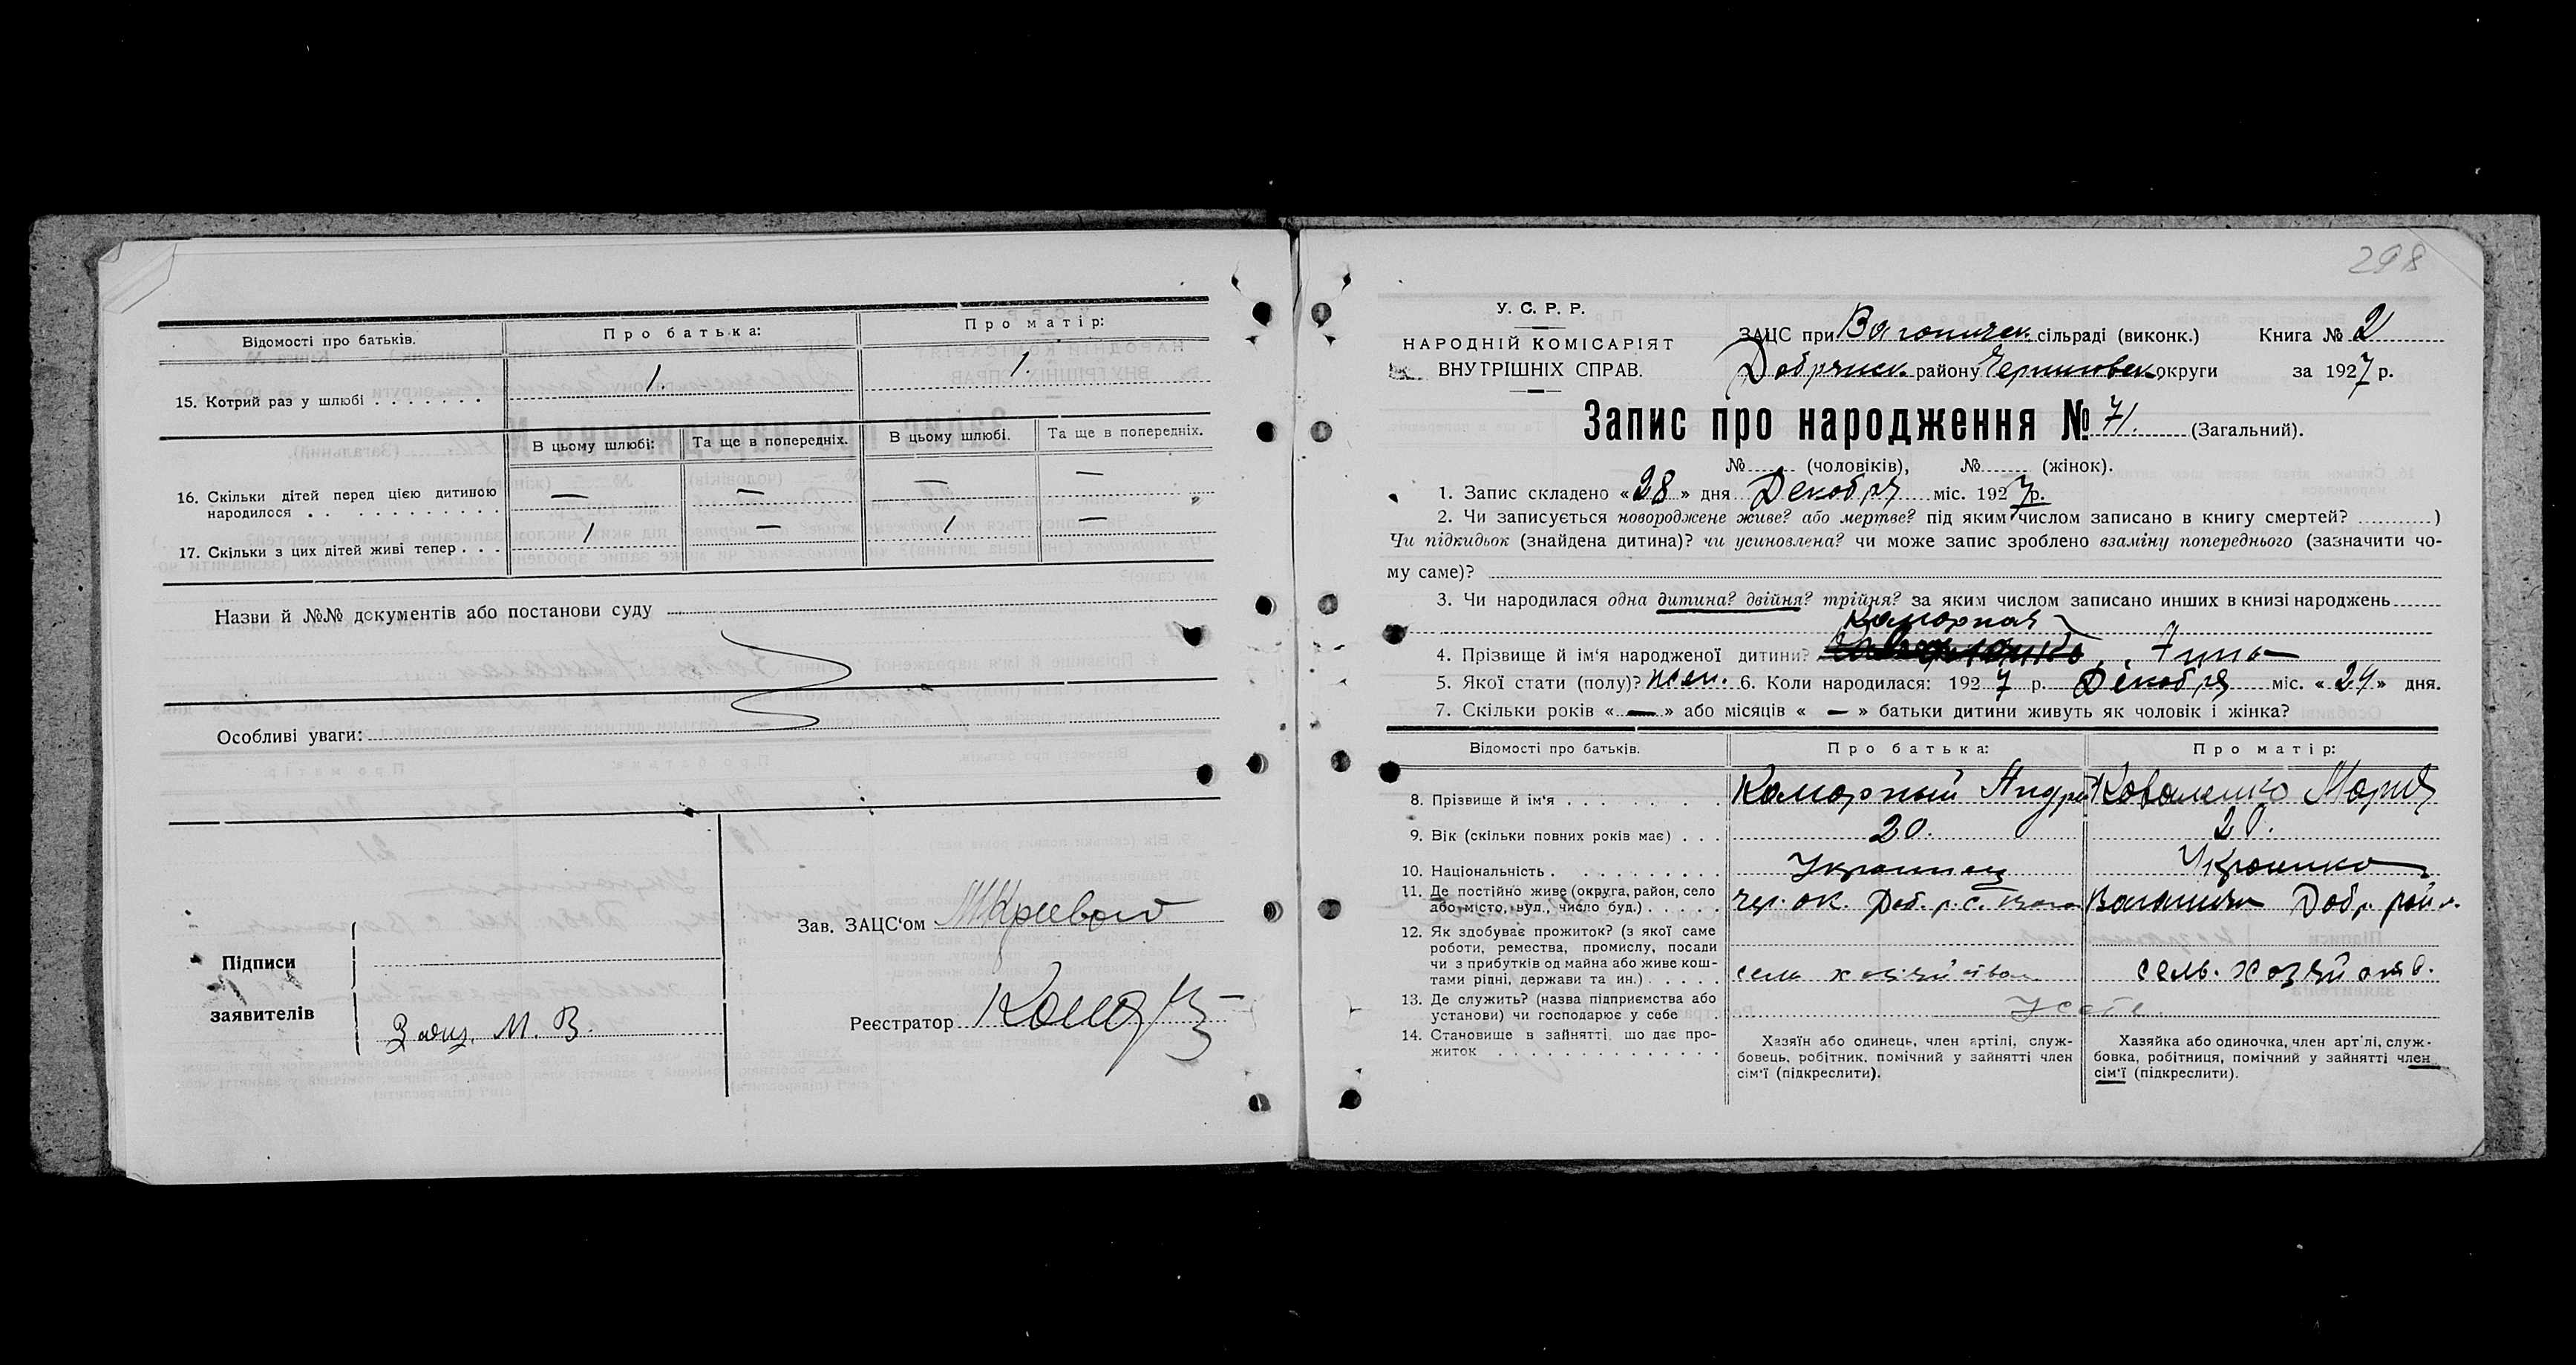 Відомості про батьків.
Про батька:
Про матір:
15. Котрий раз у шлюбі . . . . . . .
1
1.
В цьому шлюбі:
Та ще в попередніх.
В цьому шлюбі.
Та ще в попередніх.
16. Скільки дітей перед цією дитиною
народилося . . . . . . . . . . .
— — — —
17. Скільки з цих дітей живі тепер . . .
1 — 1 —
Назви й №№ документів або постанови суду
Особливі уваги:
Підписи
заявителів
Заяц. М. В.
Зав. ЗАЦС'ом
Реєстратор
298
У. С. Р. Р.
НАРОДНІЙ КОМІСАРІЯТ
ВНУТРІШНІХ СПРАВ.
ЗАЦС при Вагоничск. сільраді (виконк.) Книга № 2
Добрянск. району Черниговск. округи за 1927 р.
Запис про народження № 71. (Загальний).
№ (чоловіків), № (жінок).
1. Запис складено «28» дня Декобря міс. 1927 р.
2. Чи записується новороджене живе? або мертве? під яким числом записано в книгу смертей? )
Чи підкидьок (знайдена дитина)? чи усиновлена? чи може запис зроблено взаміну попереднього (зазначити чо-
му саме)?
3. Чи народилася одна дитина? двійня? трійня? за яким числом записано инших в книзі народжень
Каморная
4. Прізвище й ім'я народженої дитини? Анна
5. Якої стати (полу)? жен. 6. Коли народилася: 1927 р. Декобря міс. «24» дня.
7. Скільки років «—» або місяців «—» батьки дитини живуть як чоловік і жінка?
Відомості про батьків.
Про батька:
Про матір:
8. Прізвище й ім'я . . . . . . . .
Каморный Андрей
Коваленко Мария
9. Вік (скільки повних років має) . . .
20.
20.
10. Національність . . . . . . . . . .
Украинец
Украинка
11. Де постійно живе (округа, район, село
або місто, вул., число буд.) . . . . .
Чер. ок. Доб. р. с.
Ваганичи Добр. район.
12. Як здобуває прожиток? (з якої саме
роботи, ремества, промислу, посади
чи з прибутків од майна або живе кош-
тами рідні, держави та ин.) . . . . .
сель хозяйство
сель. хозяйств.
13. Де служить? (назва підприємства або
установи) чи господарює у себе .
14. Становище в зайнятті, що дає про-
житок . . . . . . . . . . . . . .
Хазяїн або одинець, член артілі, служ-
бовець, робітник, помічний у зайнятті член
сім'ї (підкреслити).
Хазяйка або одиночка, член арт'лі, служ-
бовка, робітниця, помічний у зайнятті член
сім'ї (підкреслити).